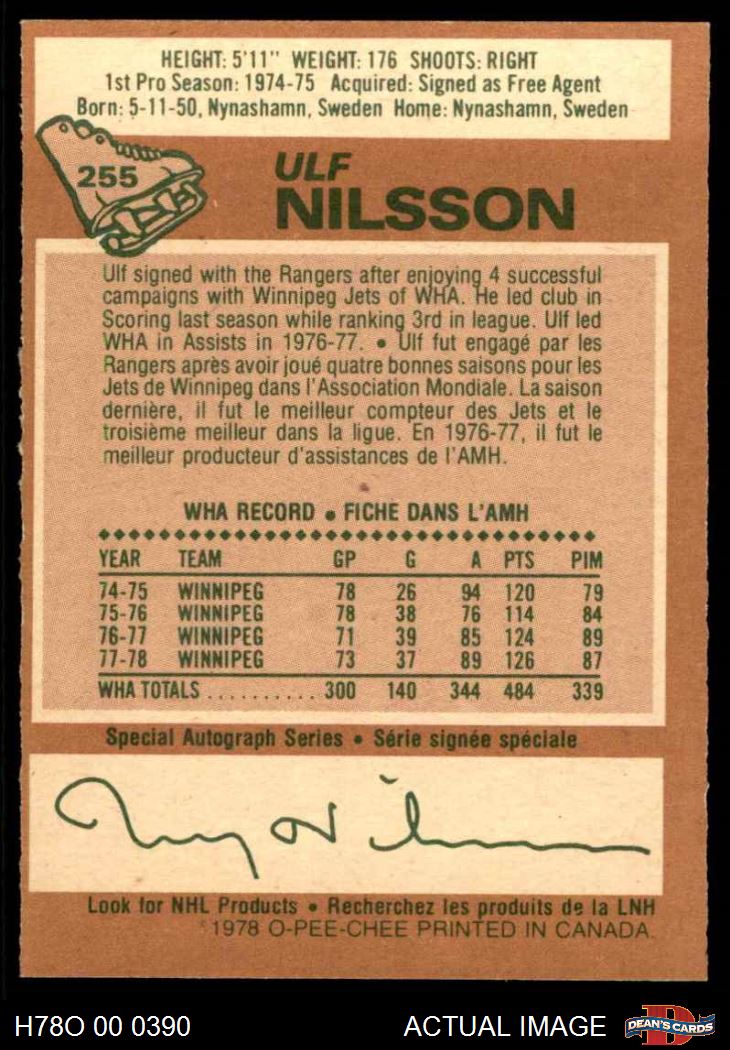 HEIGHT: 5'11" WEIGHT: 176 SHOOTS: RIGHT
1st Pro Season: 1974-75 Acquired: Signed as Free Agent
Born: 5-11-50, Nynashamn, Sweden Home: Nynashamn, Sweden
255
ULF
NILSSON
Ulf signed with the Rangers after enjoying 4 successful
campaigns with Winnipeg Jets of WHA. He led club in
Scoring last season while ranking 3rd in league. Ulf led
WHA in Assists in 1976-77. • Ulf fut engagé par les
Rangers après avoir joué quatre bonnes saisons pour les
Jets de Winnipeg dans l'Association Mondiale. La saison
dernière, il fut le meilleur compteur des Jets et le
troisième meilleur dans la ligue. En 1976-77, il fut le
meilleur producteur d'assistances de l'AMH.
WHA RECORD • FICHE DANS L'AMH
YEAR TEAM GP G A PTS PIM
74-75 WINNIPEG 78 26 94 120 79
75-76 WINNIPEG 78 38 76 114 84
76-77 WINNIPEG 71 39 85 124 89
77-78 WINNIPEG 73 37 89 126 87
WHA TOTALS .......... 300 140 344 484 339
Special Autograph Series • Série signée spéciale
Look for NHL Products • Recherchez les produits de la LNH
©1978 O-PEE-CHEE PRINTED IN CANADA.
H78O 00 0390 ACTUAL IMAGE
D
DEAN'S CARDS